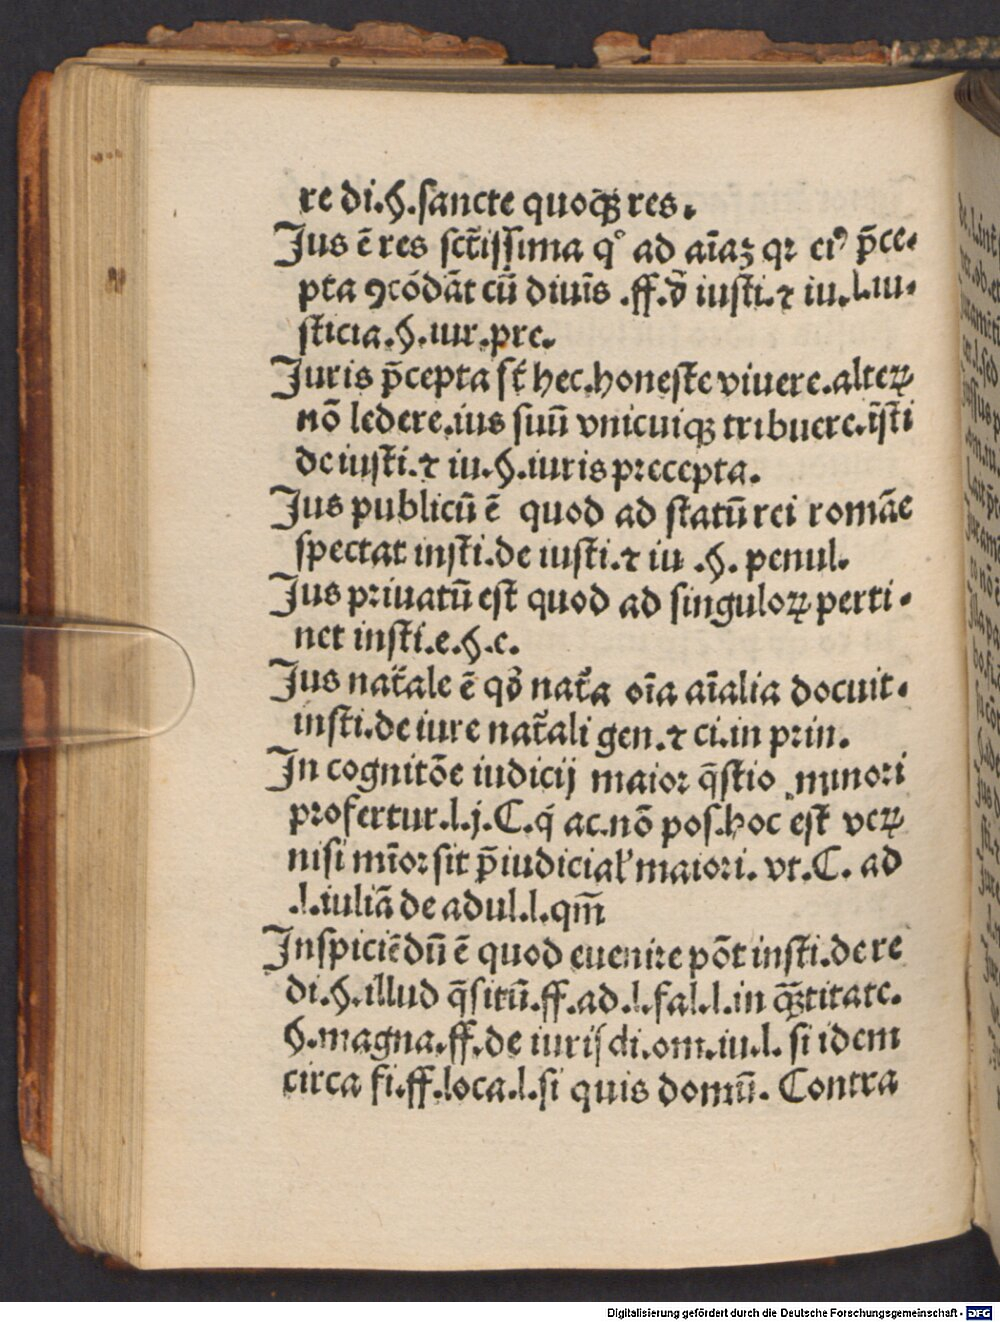 re di.§.sancte quoqꝫ res.
Jus ē res sct̄issima qͦ ad aīaꝫ qꝛ eiꝰ p̄ce-
pta ꝯcódāt cū diuīs .ff.d̄ iusti.⁊ iu.l.iu-
sticia.§.iur.pre.
Juris p̄cepta st̄ hec.honeste viuere.alteꝝ
nō ledere.ius suū vnicuiqꝫ tribuere.īsti
de iusti.⁊ iu.§.iuris precepta.
Jus publicū ē quod ad statū rei romāe
spectat insti.de iusti.⁊ iu .§. penul.
Jus priuatū est quod ad singuloꝝ perti-
net insti.e.§.e.
Jus nat̄ale ē qd̄ nat̄a oīa aīalia docuit.
insti.de iure nat̄ali gen.⁊ ci.in prin.
In cognitōe iudicij maior q̄stio minori
profertur.l.j.C.q́ ac.nō pos.hoc est veꝝ
nisi mīor sit p̄iudicial' maiori. vt.C. ad
.l.iuliā de adul.l.qm̄
Inspiciēdū ē quod euenire pōt insti.de re
di.§.illud q̄situ̅.ff.ad.l.fal.l.in qꝫ̄titate.
§.magna.ff.de iurisdi.om.iu.l. si idem
circa fi.ff.loca.l.si quis domū. Contra
Digitalisierung gefördert durch die Deutsche Forschungsgemeinschaft - DFG